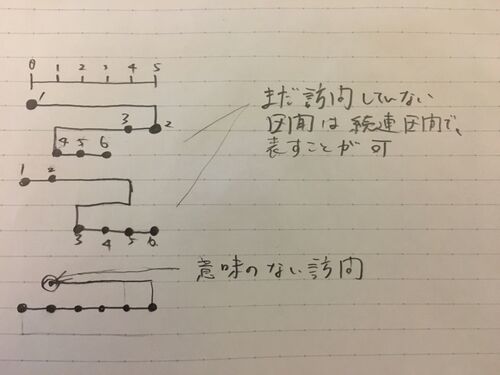 0 1 2 3 4 5
1
3 2
4 5 6
まだ訪問していない
区間は 続連区間で、
表すことが可
1 2
3 4 5 6
意味のない訪問